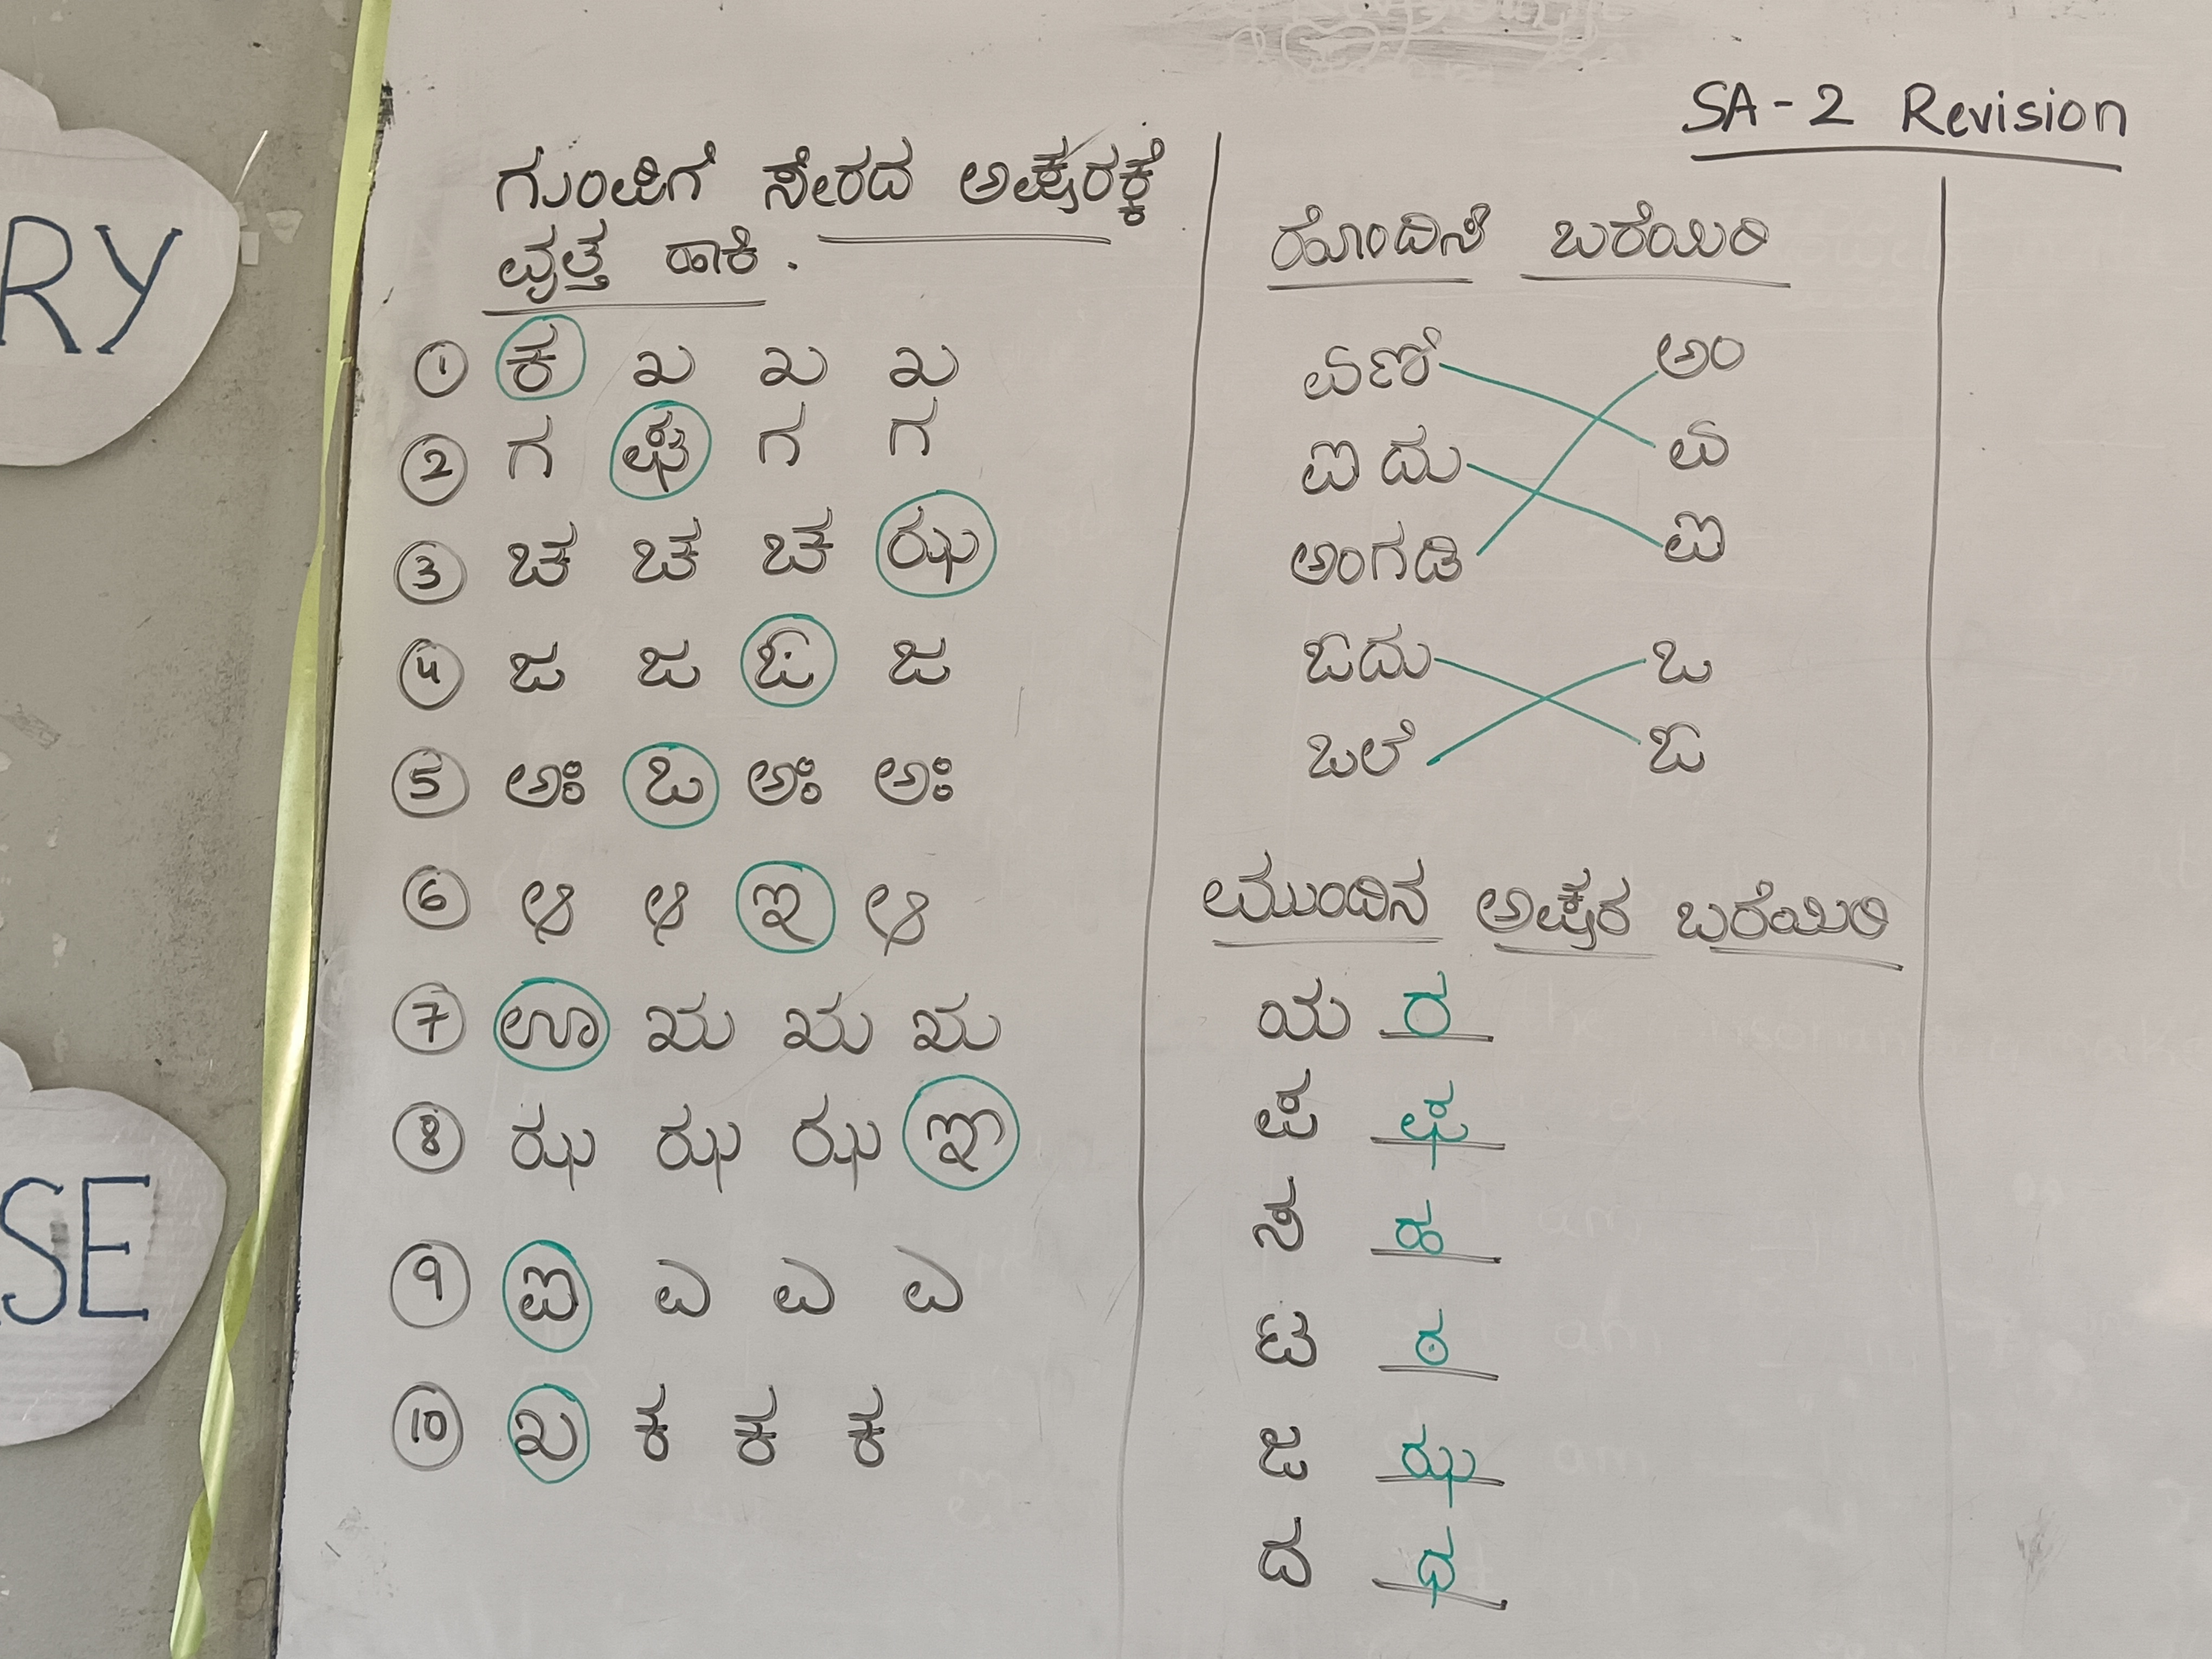 RY
SE
SA-2 Revision
ಗುಂಪಿಗೆ ಸೇರದ ಅಕ್ಷರಕ್ಕೆ
ವೃತ್ತ ಹಾಕಿ.
1 ಕ ಖ ಖ ಖ
2 ಗ ಘ ಗ ಗ
3 ಚ ಚ ಚ ಝ
4 ಜ ಜ ಓ ಜ
5 ಅಃ ಒ ಅಃ ಅಃ
6 ಆ ಆ ಇ ಆ
7 ಊ ಋ ಋ ಋ
8 ಝ ಝ ಝ ಞ
9 ಐ ಎ ಎ ಎ
10 ಖ ಕ ಕ ಕ
ಹೊಂದಿಸಿ ಬರೆಯಿರಿ
ಏಣಿ ಅಂ
ಐದು ಏ
ಅಂಗಡಿ ಐ
ಓದು ಒ
ಒಲೆ ಓ
ಮುಂದಿನ ಅಕ್ಷರ ಬರೆಯಿರಿ
ಯ ರ
ಪ ಫ
ತ ಥ
ಟ ಠ
ಜ ಝ
ದ ಧ